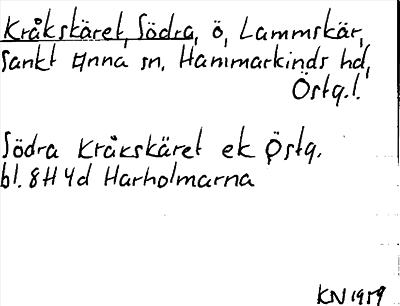 Kråkskäret, Södra, ö, Lammskär,
Sankt Anna sn, Hammarkinds hd,
Östg.l.
Södra Kråkskäret ek Östg.
bl. 8H 4d Harholmarna
KN 1959